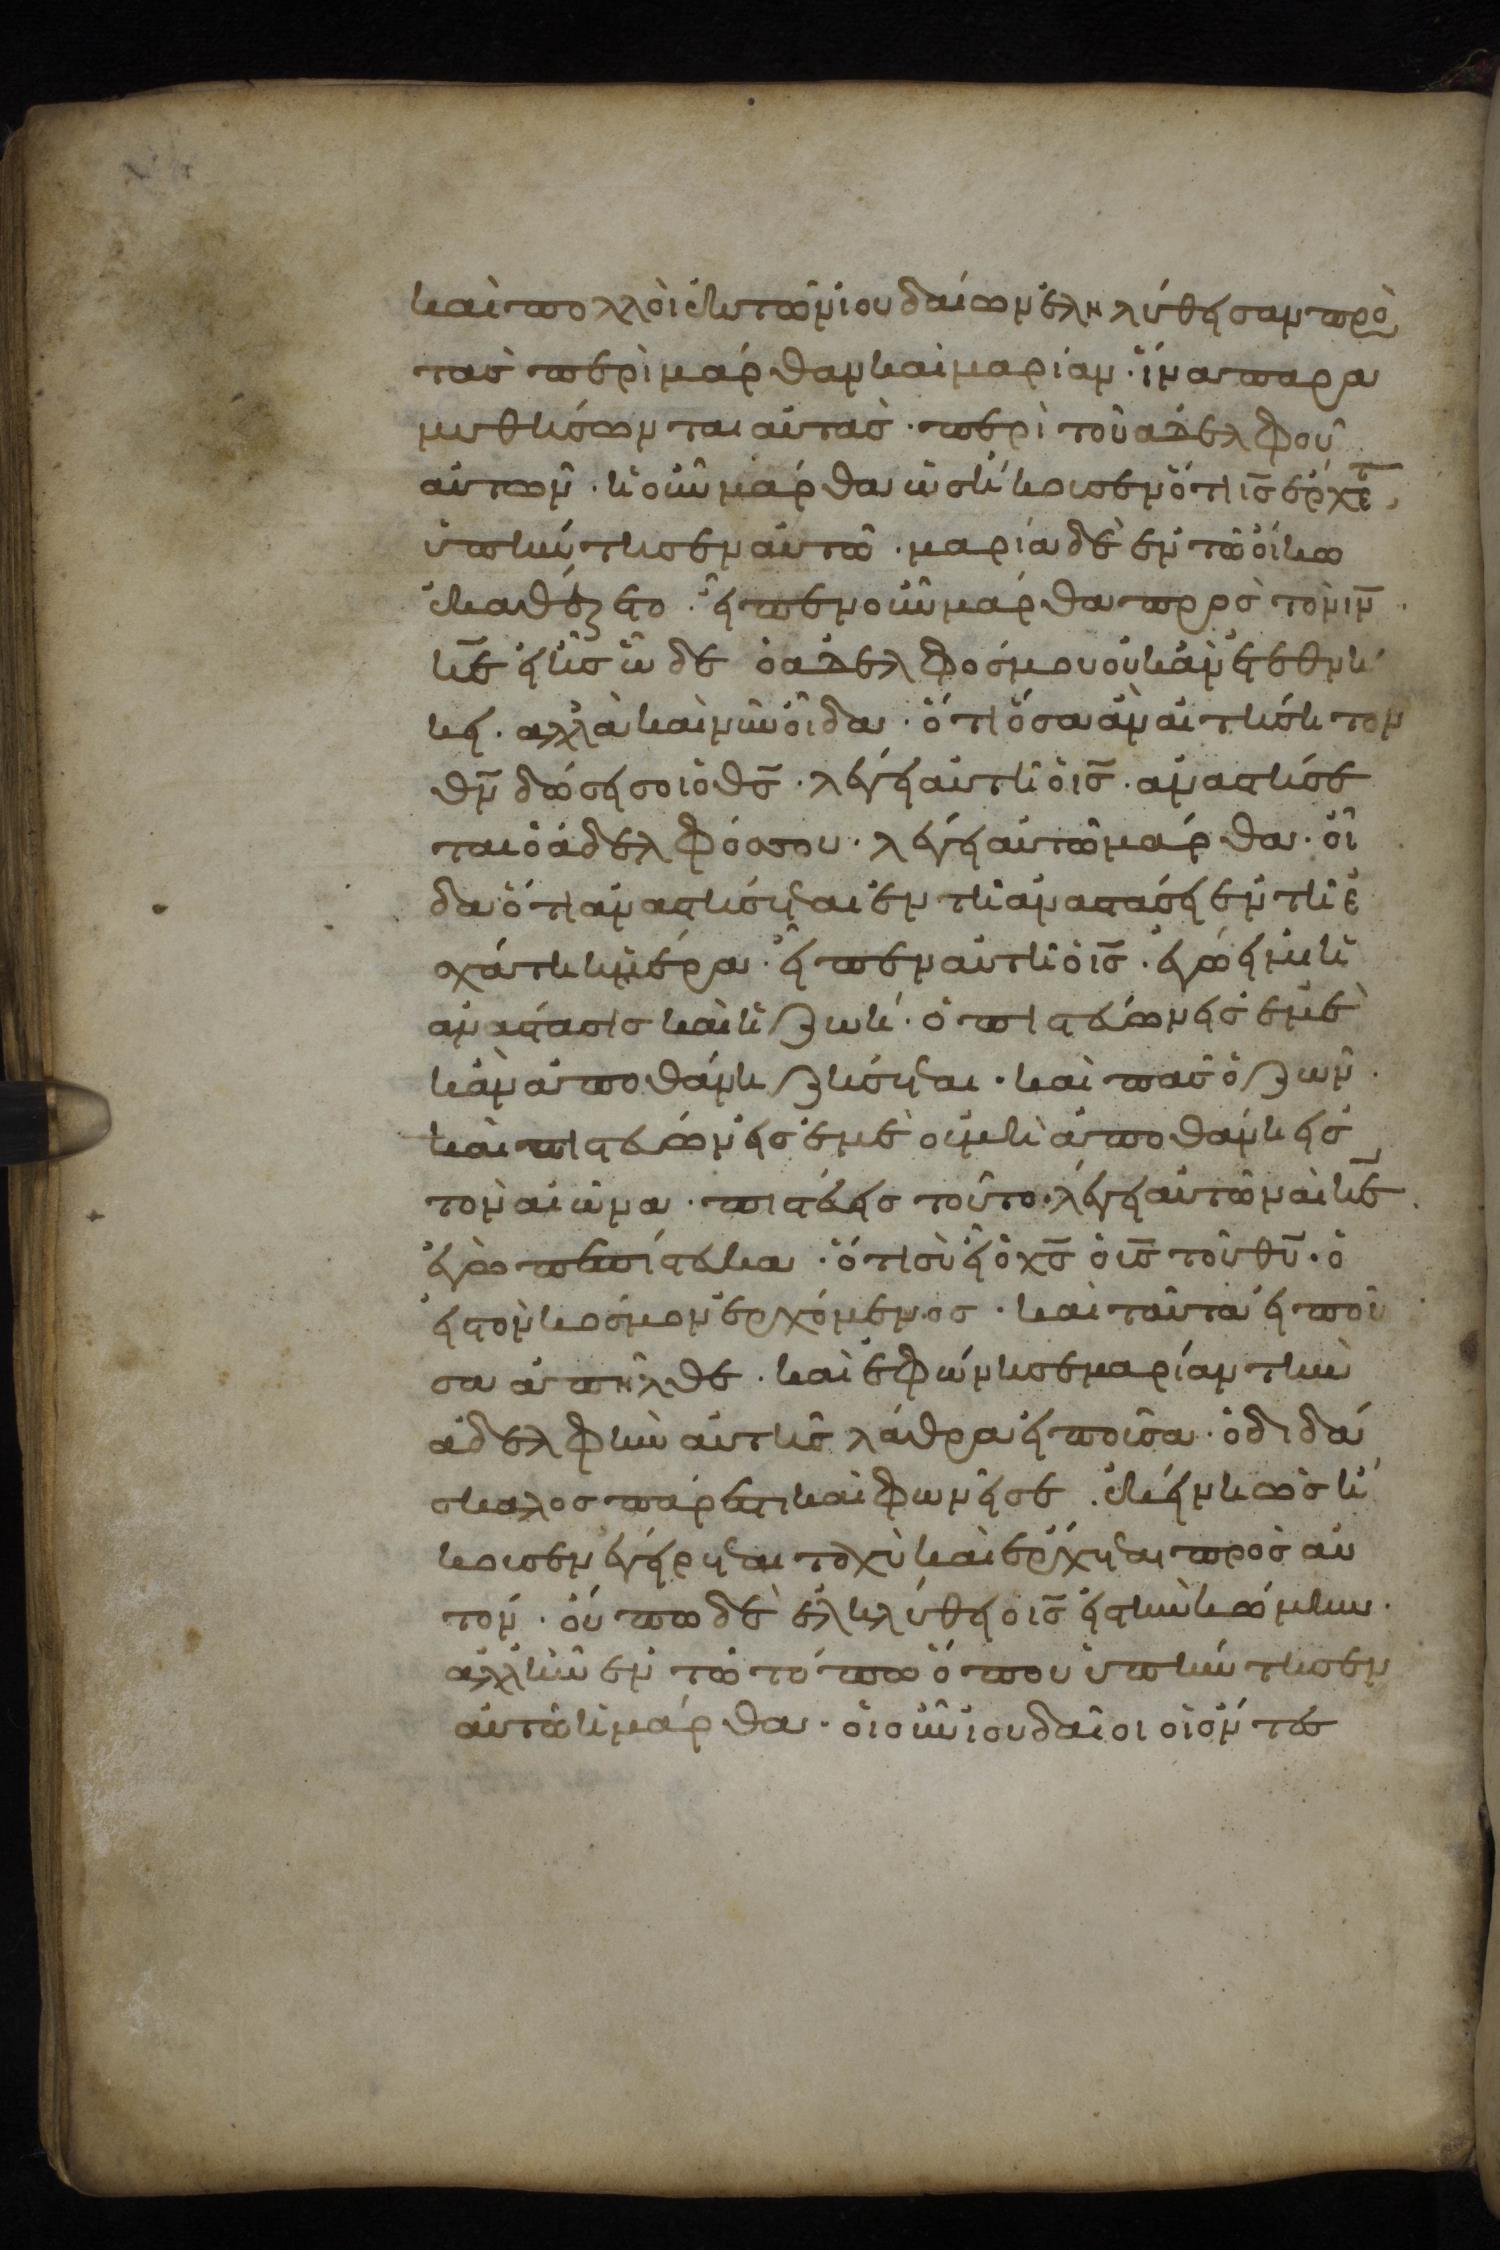 καὶ πολλοὶ ἐκ τῶν ἰουδαίων ἐληλύθεισαν πρὸ
τασ περὶ μάρθαν καὶ μαρίαν · ἵνα παρα
μυθήσωνται αὐτασ · περὶ τοῦ ἀδελφοῦ
αὐτῶν · ἡ οὖν μάρθα ὡσ ἤκουσεν ὅτι ισ̅ ἔρχετ̅
ὑπήντησεν αὐτῶ · μαρία δὲ ἐν τῶ οἴκω
ἐκαθέζετο · εἶπεν οὖν μάρθα πρὸσ τὸν ιν̅ ·
κε̅ εἰ ἦσ ὧδε ὁ ἀδελφόσ μου οὐκ ἂν ἐτεθνή
κει · ἀλλὰ καὶ νῦν οἶδα · ὅτι ὅσα ἂν αἰτήση τὸν
θν̅ δώσει σοι ὁ θσ̅ · λέγει αὐτῆ ὁ ισ̅ · ἀναστήσε
ται ὁ ἀδελφόσ σου · λέγει αὐτῶ μάρθα · οἶ
δα ὅτι ἀναστήσεται ἐν τῆ ἀναστάσει ἐν τῆ ἐ
σχάτη ἡμέρα · εἶπεν αὐτῆ ὁ ισ̅ · ἐγώ εἰμι ἡ
ἀνάστασισ καὶ ἡ ζωή · ὁ πιστεύων εἰσ ἐμὲ
κἂν ἀποθάνη ζήσεται · καὶ πᾶσ ὁ ζῶν ·
καὶ πιστεύων εἰσ ἐμὲ οὐ μὴ ἀποθάνη εἰσ
τὸν αἰῶνα · πιστεύεισ τοῦτο · λέγει αὐτῶ ναὶ κε̅ ·
ἐγὼ πεπίστευκα · ὅτι σὺ εἶ ὁ χσ̅ ὁ υσ̅ τοῦ θυ̅ · ὁ
εἰσ τὸν κόσμον ἐρχόμενοσ · καὶ ταῦτα εἰποῦ
σα ἀπῆλθε · καὶ ἐφώνησε μαρίαν τὴν
ἀδελφὴν αὐτῆσ λάθρα εἰποῦσα · ὁ διδά
σκαλοσ πάρεστι καὶ φωνεῖ σε · ἐκείνη ὡσ ἤ
κουσεν ἐγείρεται ταχὺ καὶ ἔρχεται πρὸσ αὐ
τόν · οὔπω δὲ ἐληλύθει ὁ ισ̅ εἰσ τὴν κώμην ·
ἀλλ ἦν ἐν τῶ τόπω ὅπου ὑπήντησεν
αὐτῶ ἡ μάρθα · οἱ οὖν ἰουδαῖοι οἱ ὄντεσ